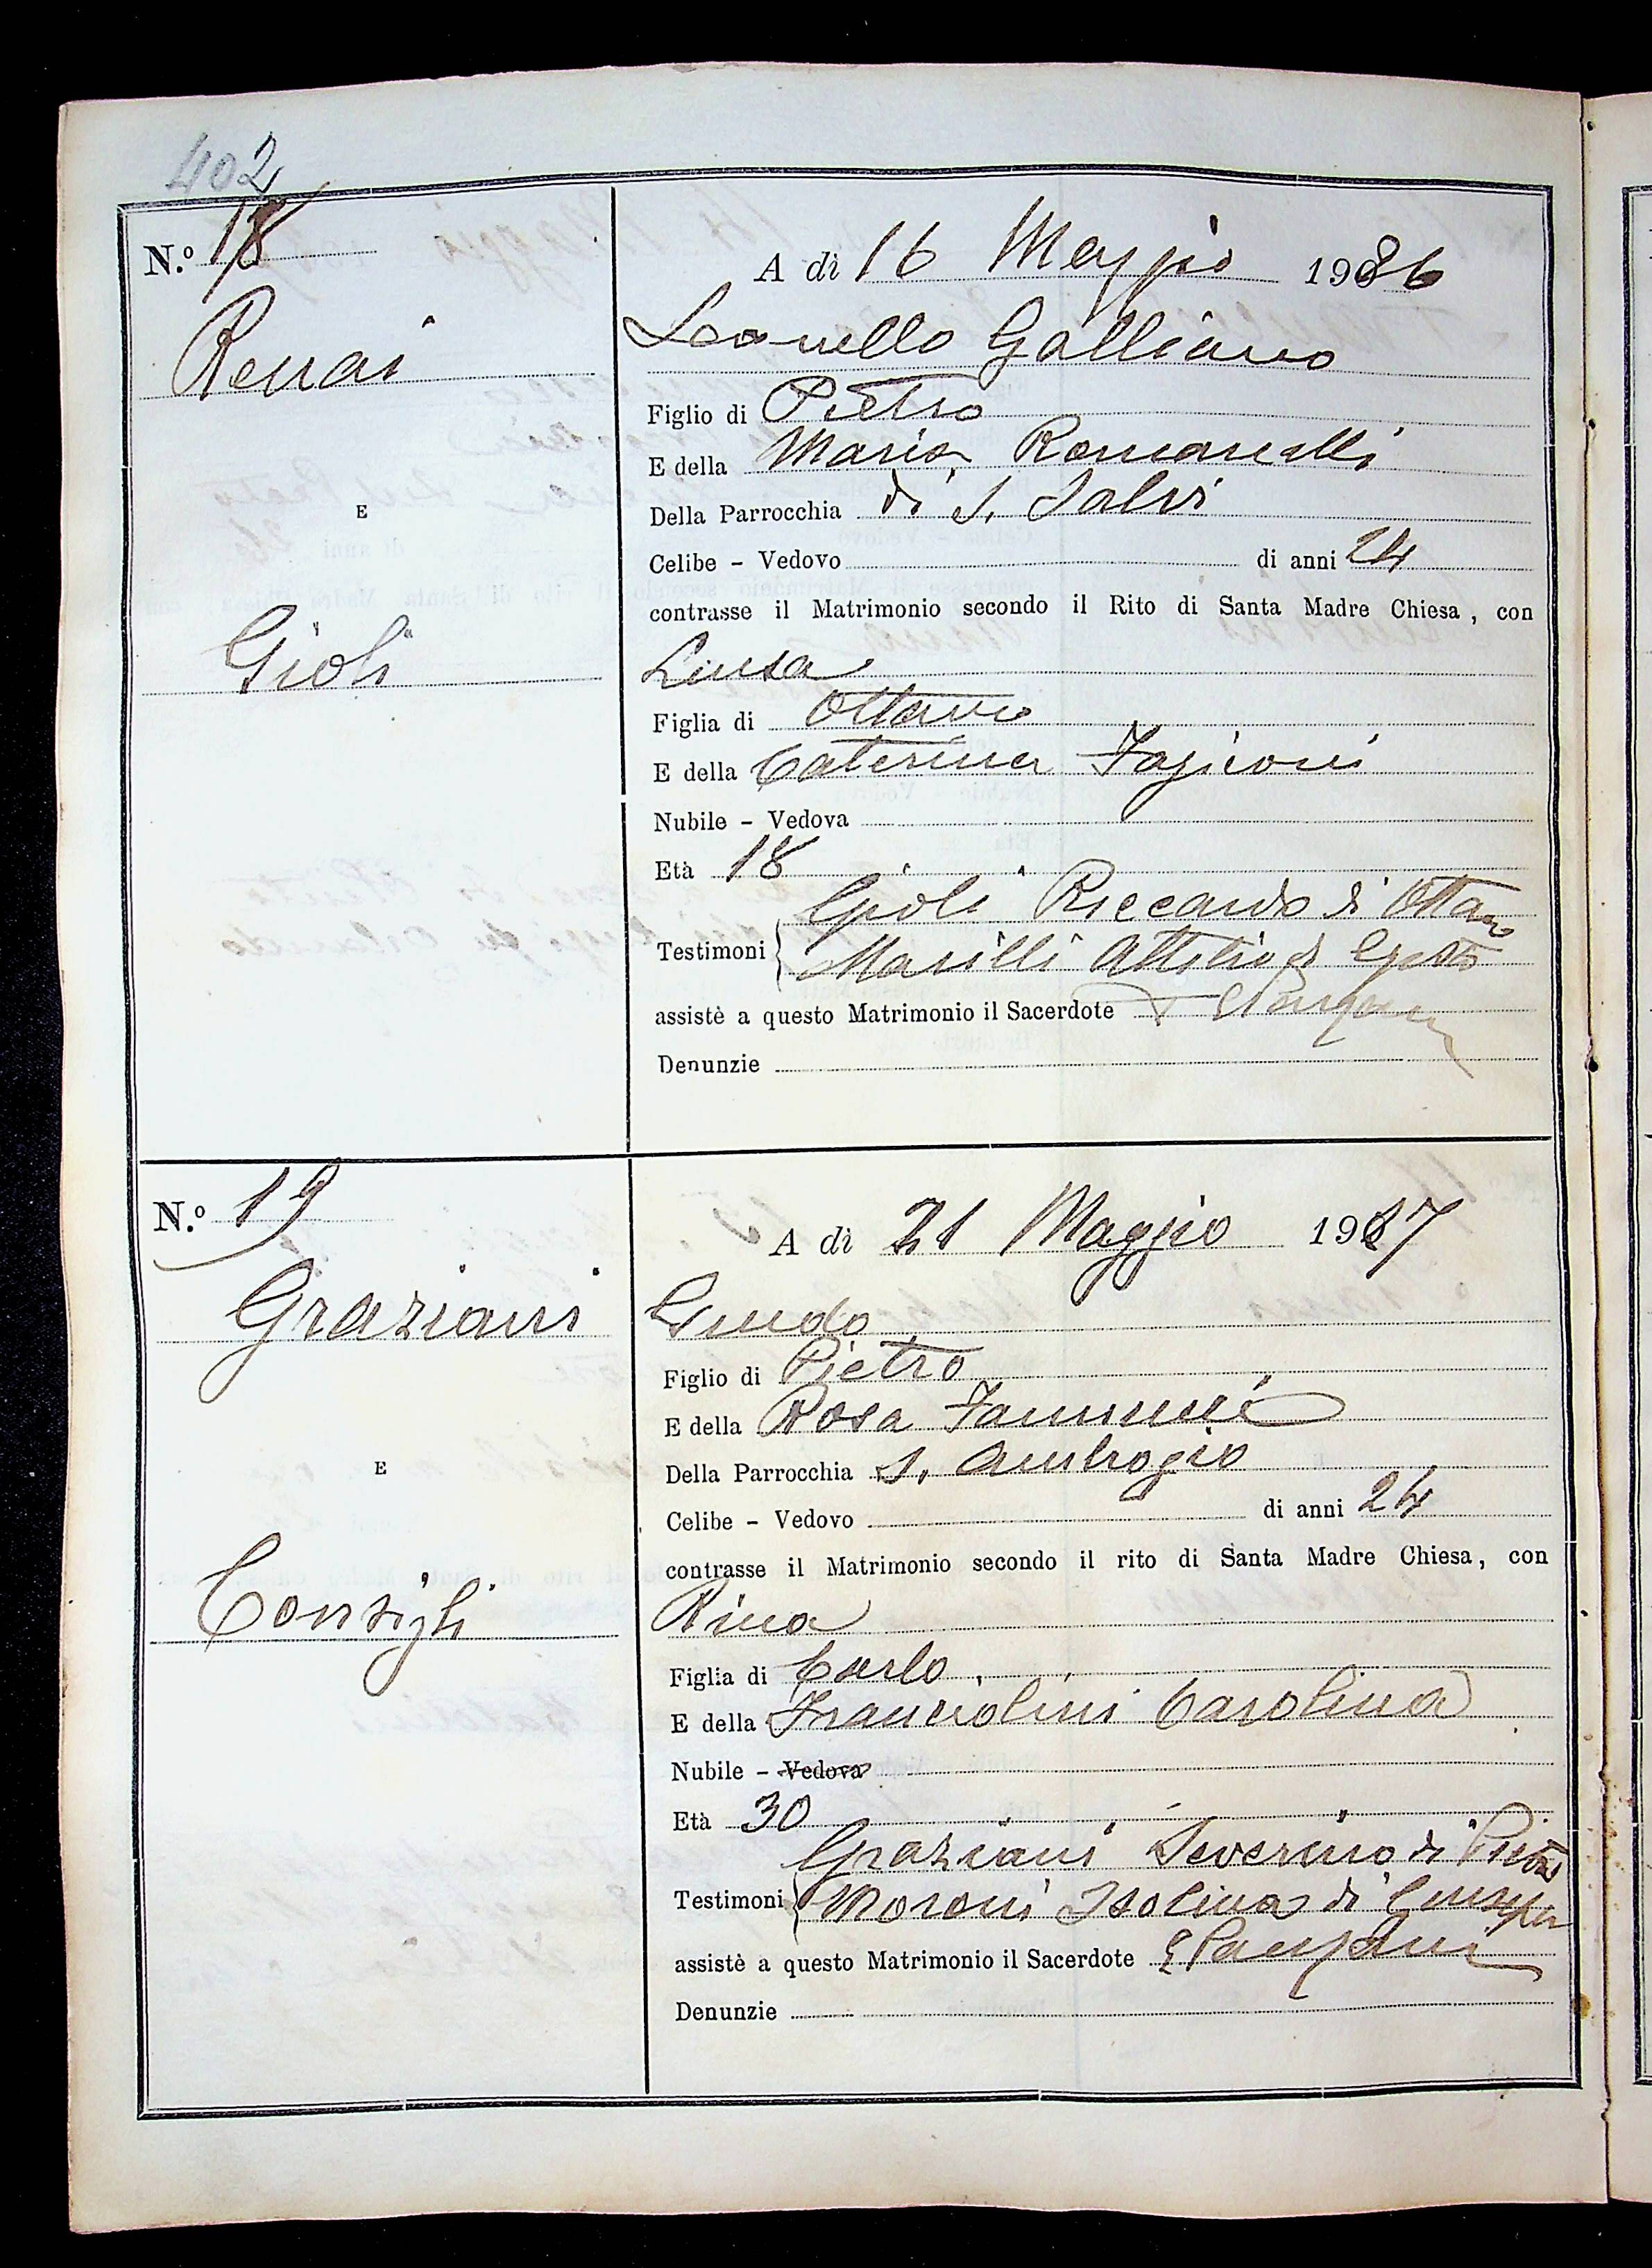 402
N.º 18
A dì 16 Maggio 1926
Renai
Leonello Galliano
Figlio di Pietro
E della Maria Romanelli
Della Parrocchia di S. Salvi
E
Celibe - Vedovo di anni 24
contrasse il Matrimonio secondo il Rito di Santa Madre Chiesa, con
Gioli
Luisa
Figlia di Ottavio
E della Caterina Fagioni
Nubile - Vedova
Età 18
Gioli Riccardo di Ottavo
Testimoni
Masilli Attilio di
assistè a questo Matrimonio il Sacerdote
Denunzie
N.º 19
A dì 21 Maggio 1927
Graziani
Guido
Figlio di Pietro
E della Rosa
Della Parrocchia S. Ambrogio
E
Celibe - Vedovo di anni 24
contrasse il Matrimonio secondo il rito di Santa Madre Chiesa, con
Consigli
Rina
Figlia di Carlo
E della Franciolini Carolina
Nubile - Vedova
Età 30
Graziani Severino di Pietro
Testimoni
Moroni Isolina di
assistè a questo Matrimonio il Sacerdote
Denunzie